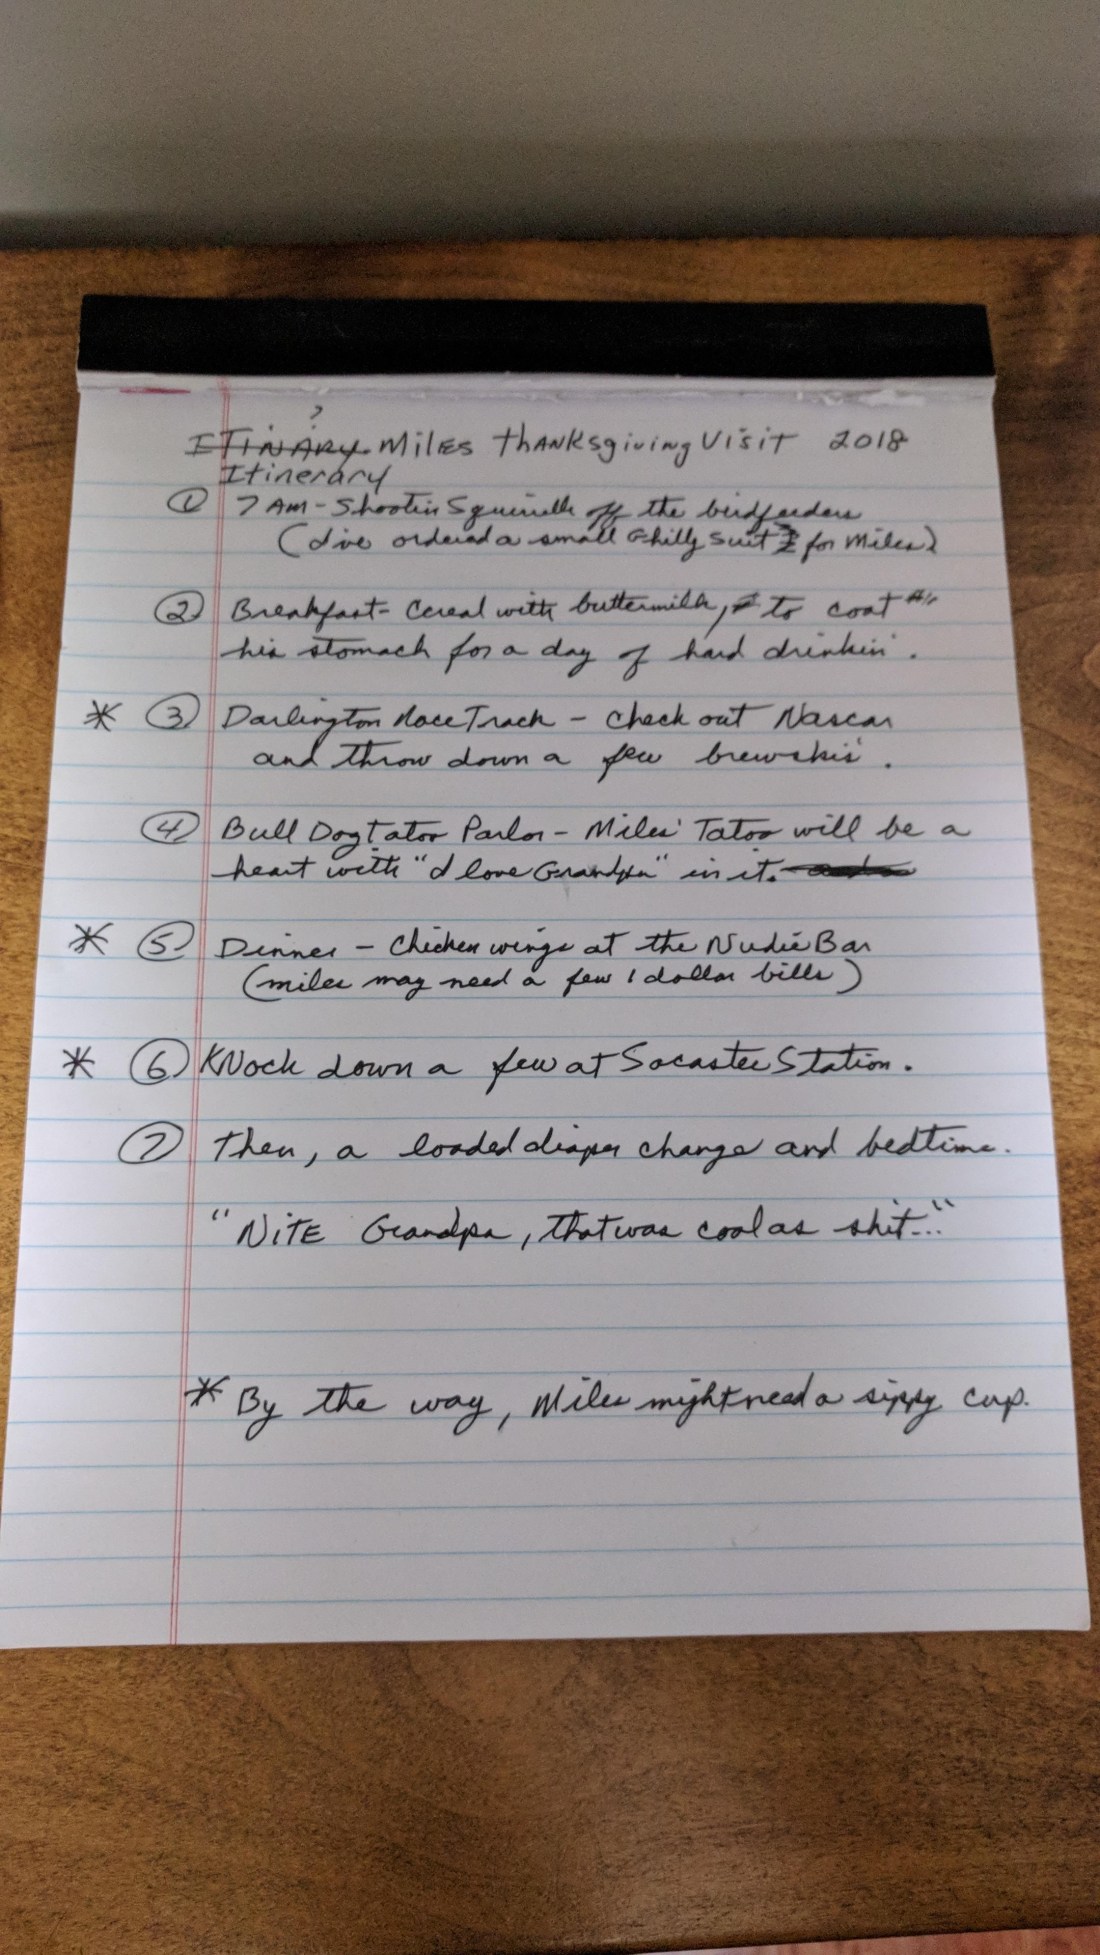 ?
ITINARY Miles Thanksgiving Visit 2018
Itinerary
① 7 AM - Shootin Squirrells off the birdfeeders
(I've ordered a small Ghilly Suit for Miles)
② Breakfast - Cereal with buttermilk, to coat
his stomach for a day of hard drinkin'.
* ③ Darlington Race Track - check out Nascar
and throw down a few brewskis'.
④ Bull Dog Tatoo Parlor - Miles' Tatoo will be a
heart with "I love Grandpa" in it.
* ⑤ Dinner - Chicken wings at the Nudie Bar
(miles may need a few 1 dollar bills)
* ⑥ KNock down a few at Socastee Station.
⑦ Then, a loaded diaper change and bedtime.
"NiTE Grandpa, that was cool as shit..."
* By the way, Miles might need a sippy cup.